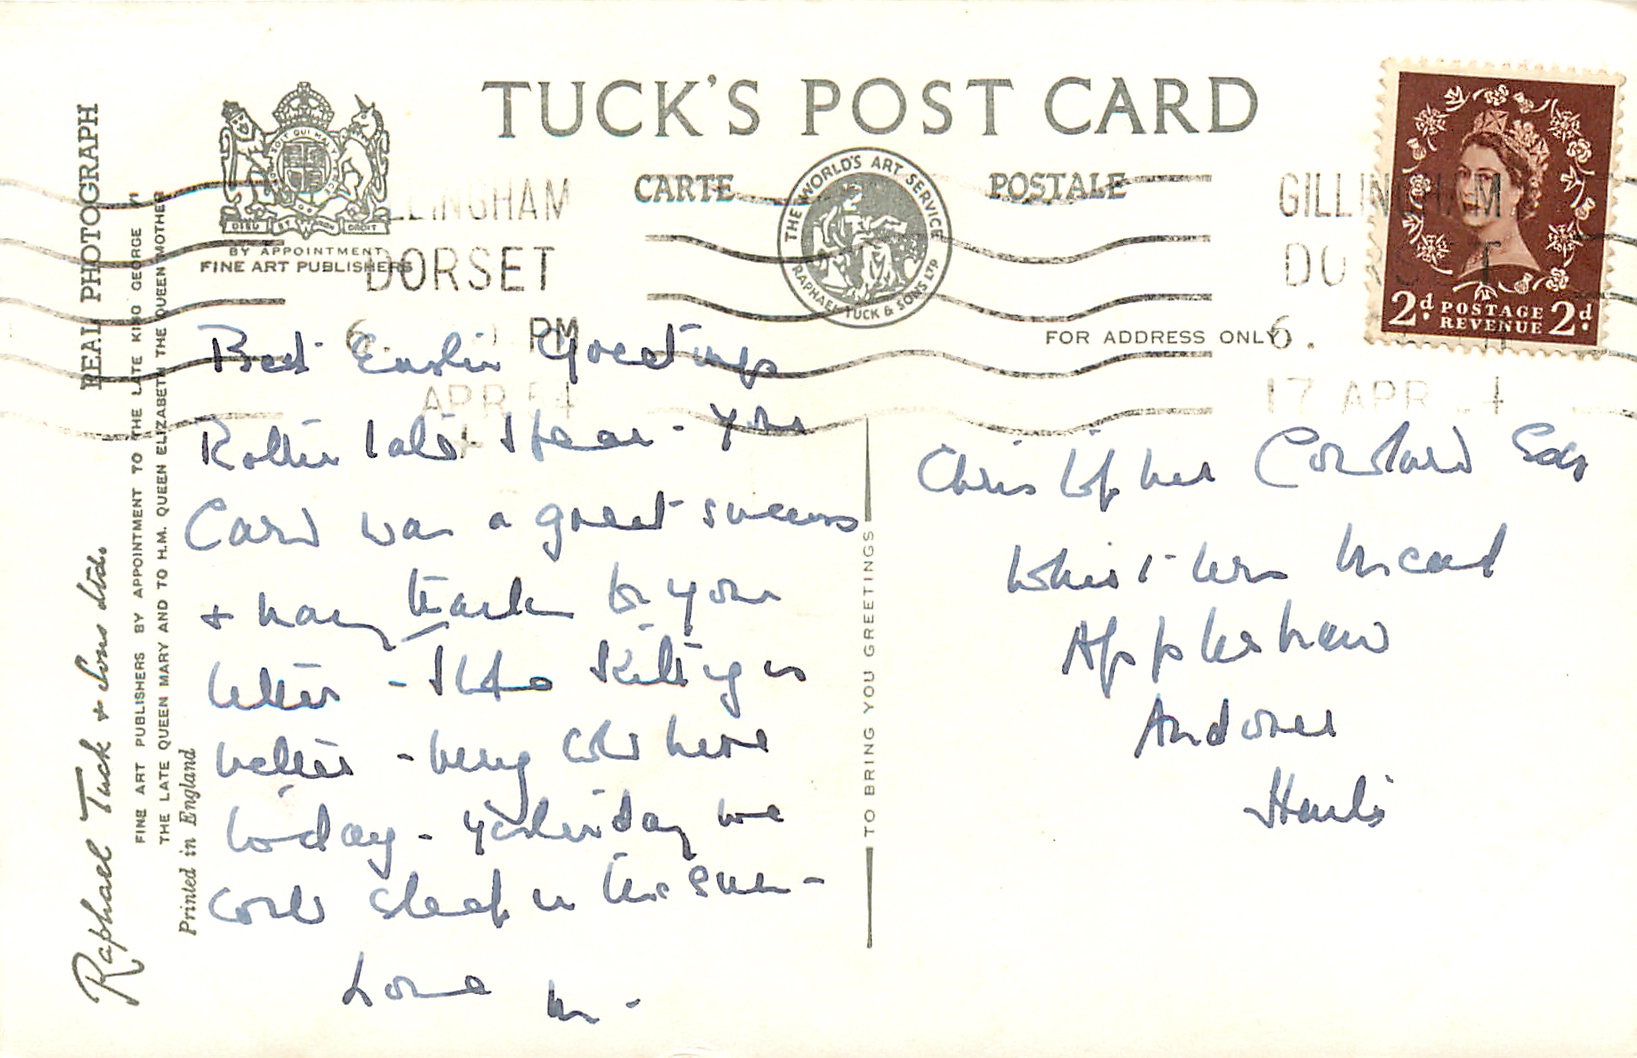 TUCK'S POST CARD
CARTE POSTALE
REAL PHOTOGRAPH
SOIT QUI MAL Y
DIEU ET MON DROIT
BY APPOINTMENT
FINE ART PUBLISHERS
THE WORLD'S ART SERVICE
RAPHAEL TUCK & SONS LTD
LINGHAM
DORSET
PM
APR 54
GILLINGHAM
DORSET
6.
17 APR
2d POSTAGE REVENUE 2d
FOR ADDRESS ONLY
Raphael Tuck & Sons Ltd.
FINE ART PUBLISHERS BY APPOINTMENT TO THE LATE KING GEORGE V
THE LATE QUEEN MARY AND TO H.M. QUEEN ELIZABETH THE QUEEN MOTHER
Printed in England
TO BRING YOU GREETINGS
Best Easter Greetings
Rather late I fear - Your
Card was a great success
& many thanks for your
letter - The is
better - very cold here
today - yesterday we
could sleep in the sun -
Love M.
Christopher Esq
Mead
Appleshaw
Andover
Hants